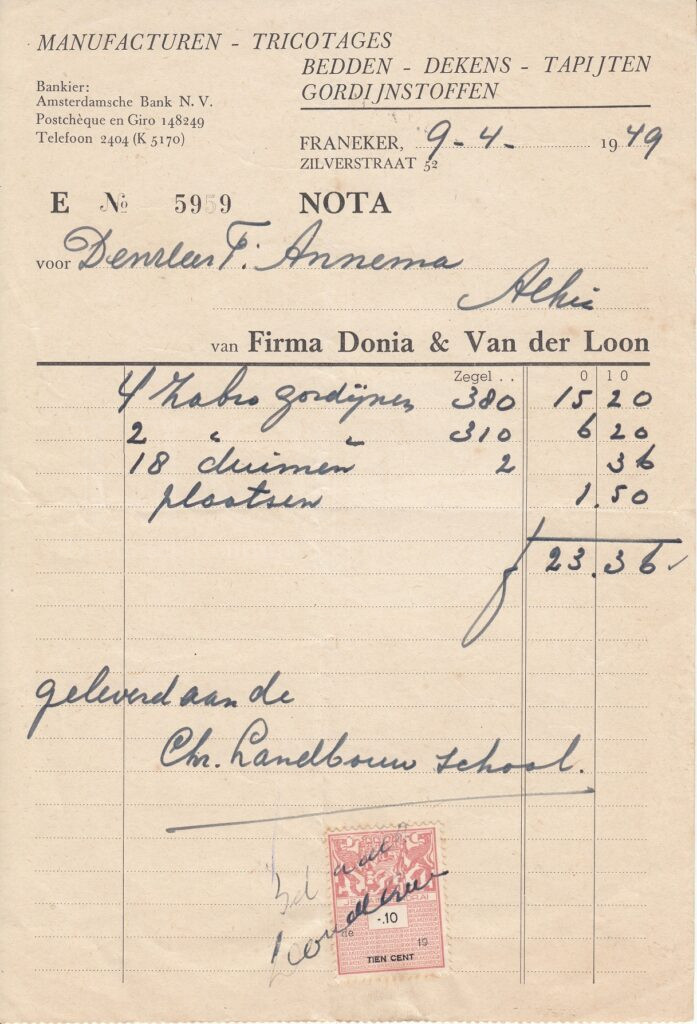 MANUFACTUREN - TRICOTAGES
BEDDEN - DEKENS - TAPIJTEN
GORDIJNSTOFFEN
Bankier:
Amsterdamsche Bank N. V.
Postchèque en Giro 148249
Telefoon 2404 (K 5170)
FRANEKER, 9-4- 1949
ZILVERSTRAAT 52
E № 5959 NOTA
voor Den Heer F. Annema
van Firma Donia & Van der Loon
Zegel . . 0 10
4 Zabro gordijnen 380 15 20
2 " " 310 6 20
18 duimen 2 36
plaatsen 1.50
f 23.36
geleverd aan de
Chr. Landbouw school.
-.10
de 19
TIEN CENT